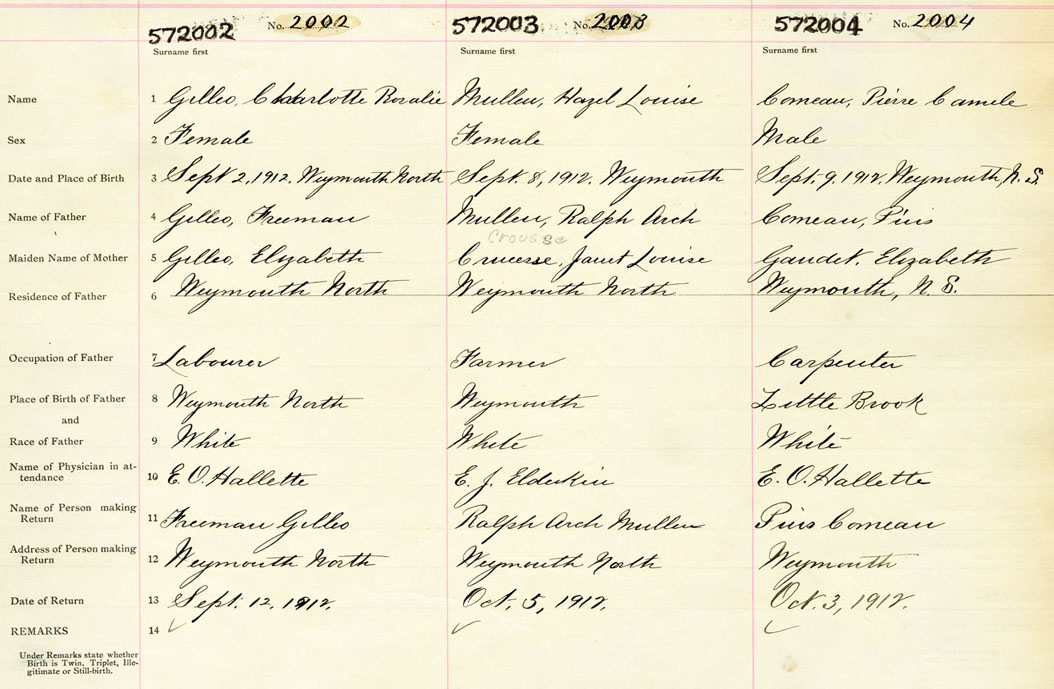 572002 No. 2002 572003 No. 2003 572004 No. 2004
Surname first Surname first Surname first
Name 1 Gilleo, Charlotte Rosalie Mullen, Hazel Louise Comeau, Pierre Camele
Sex 2 Female Female Male
Date and Place of Birth 3 Sept 2, 1912. Weymouth North Sept. 8, 1912. Weymouth Sept. 9. 1912. Weymouth, N. S.
Name of Father 4 Gilleo, Freeman Mullen, Ralph Arch Comeau, Pius
Crousse
Maiden Name of Mother 5 Gilleo, Elizabeth Crucesse, Janet Louise Gaudet. Elizabeth
Residence of Father 6 Weymouth North Weymouth North Weymouth, N. S.
Occupation of Father 7 Labourer Farmer Carpenter
Place of Birth of Father 8 Weymouth North Weymouth Little Brook
and
Race of Father 9 White White White
Name of Physician in at-
tendance 10 E. O. Hallette E. J. Elderkin E. O. Hallette
Name of Person making
Return 11 Freeman Gilleo Ralph Arch Mullen Pius Comeau
Address of Person making
Return 12 Weymouth North Weymouth North Weymouth
Date of Return 13 Sept. 12, 1912. Oct. 5, 1912. Oct. 3, 1912.
REMARKS 14
Under Remarks state whether
Birth is Twin, Triplet, Ille-
gitimate or Still-birth.